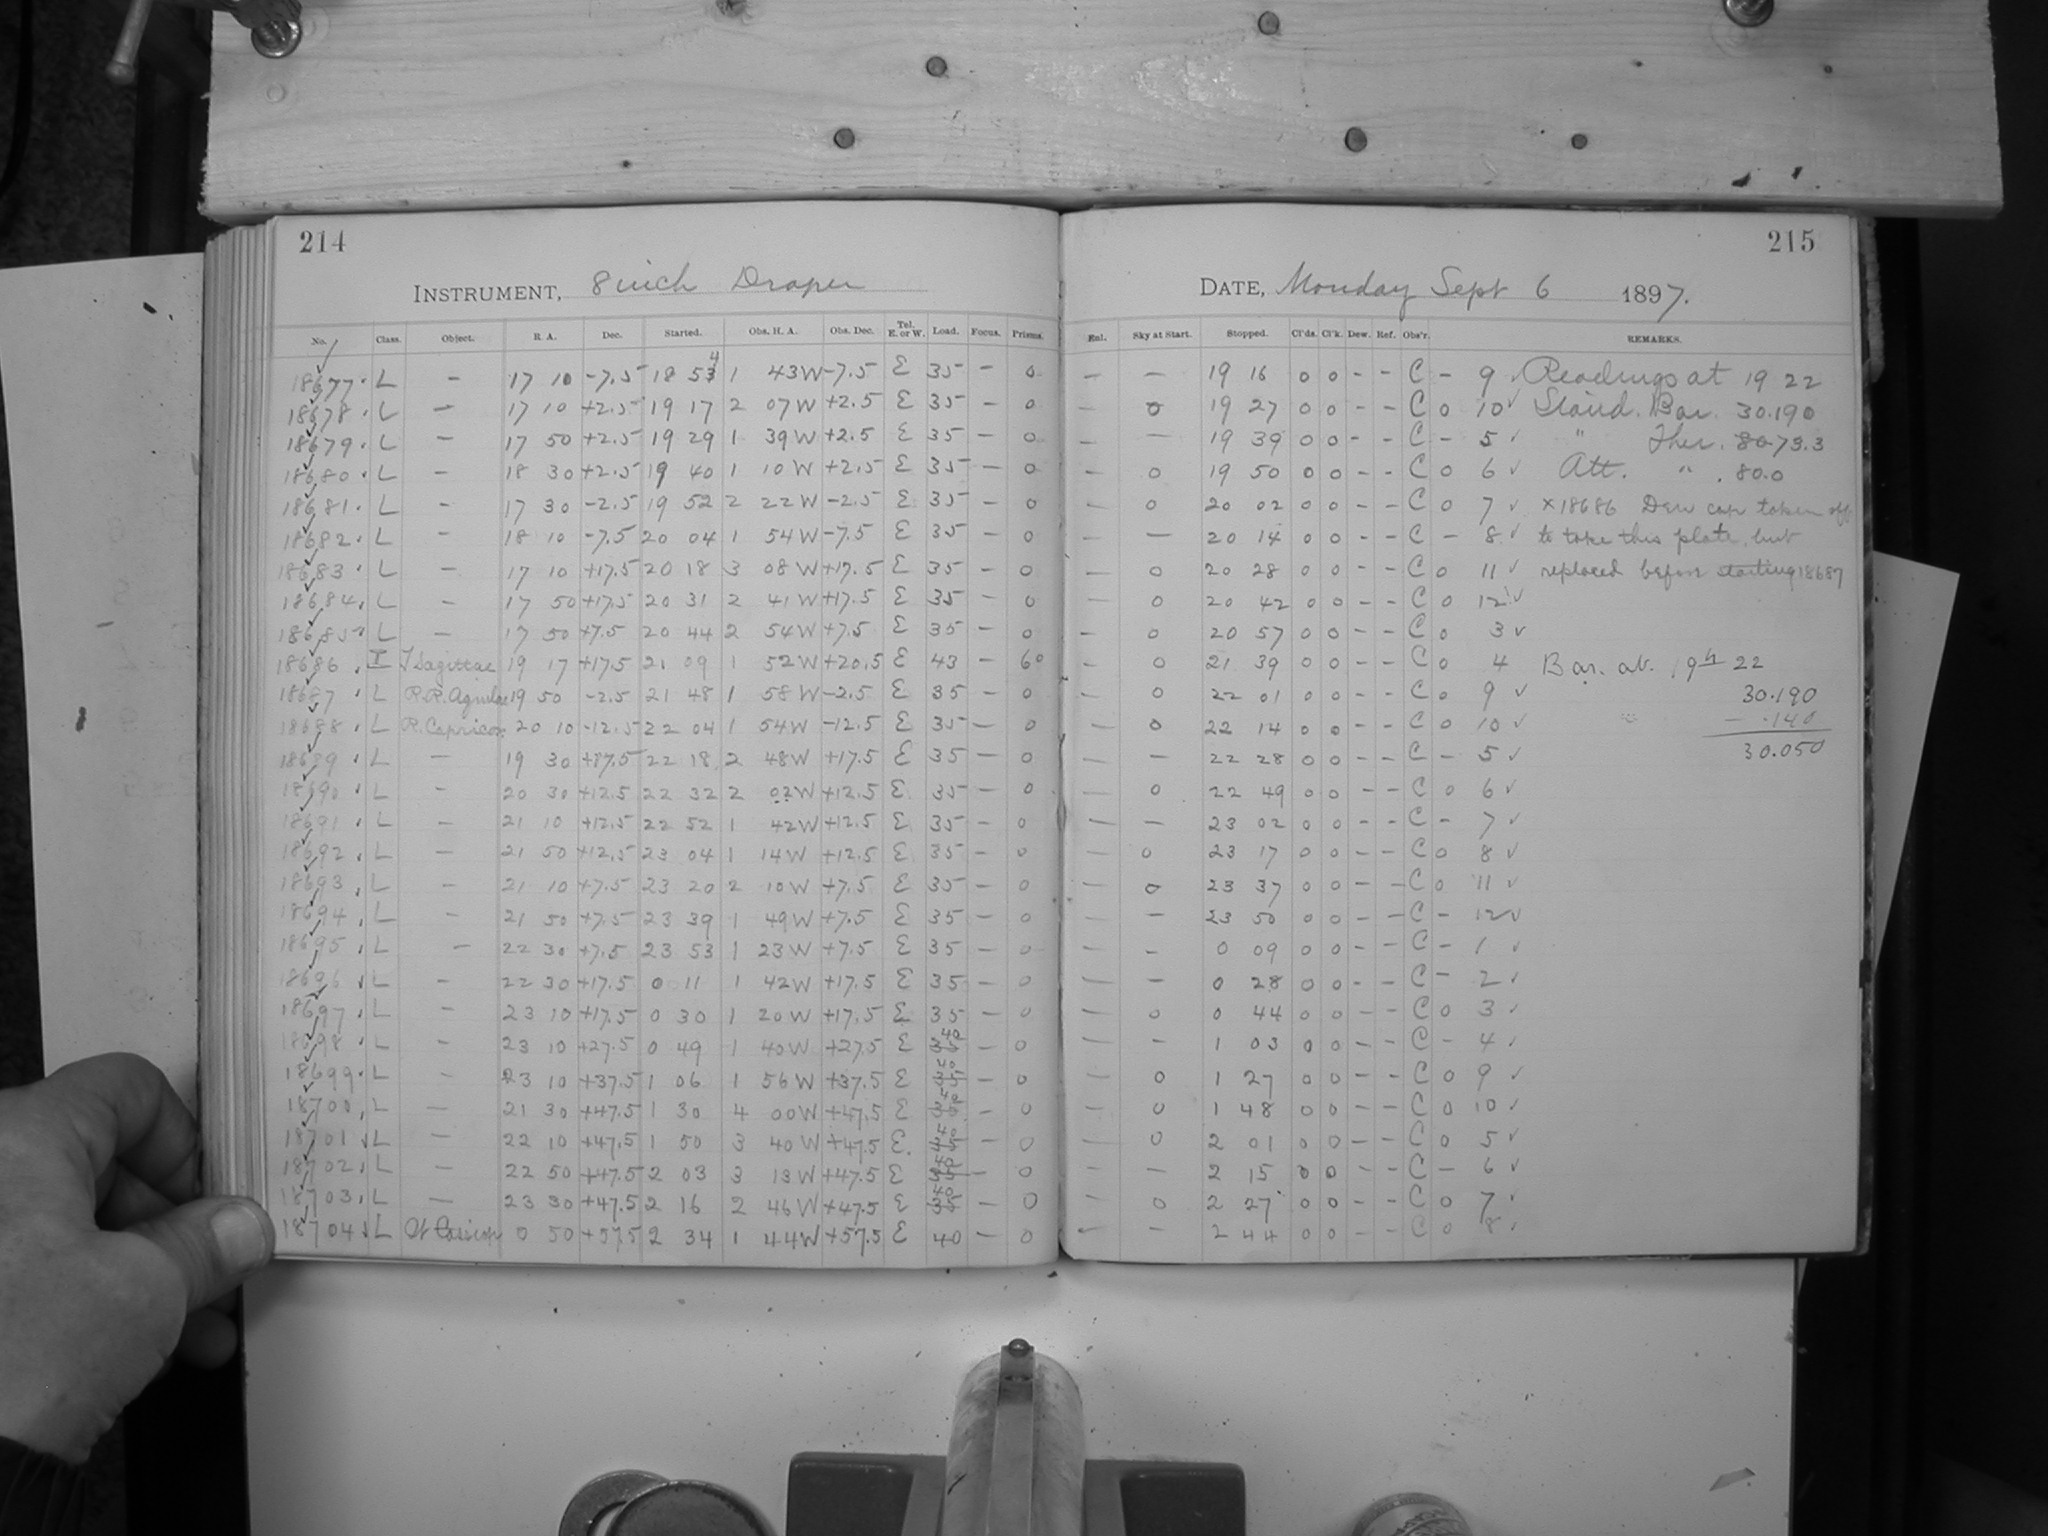 214
INSTRUMENT, 8 inch Draper
No. Class. Object. R. A. Dec. Started. Obs. H. A. Obs. Dec. Tel. E. or W. Load. Focus. Prisms.
18677 L – 17 10 -7.5 18 53 4 1 43W -7.5 E 35 – 0
18678 L – 17 10 +2.5 19 17 2 07W +2.5 E 35 – 0
18679 L – 17 50 +2.5 19 29 1 39W +2.5 E 35 – 0
18680 L – 18 30 +2.5 19 40 1 10W +2.5 E 35 – 0
18681 L – 17 30 -2.5 19 52 2 22W -2.5 E 35 – 0
18682 L – 18 10 -7.5 20 04 1 54W -7.5 E 35 – 0
18683 L – 17 10 +17.5 20 18 3 08W +17.5 E 35 – 0
18684 L – 17 50 +17.5 20 31 2 41W +17.5 E 35 – 0
18685 L – 17 50 +7.5 20 44 2 54W +7.5 E 35 – 0
18686 I T Sagittae 19 17 +17.5 21 09 1 52W +20.5 E 43 – 60
18687 L R.R. Aquilae 19 50 -2.5 21 48 1 58W -2.5 E 35 – 0
18688 L R. Capricor. 20 10 -12.5 22 04 1 54W -12.5 E 35 – 0
18689 L – 19 30 +17.5 22 18 2 48W +17.5 E 35 – 0
18690 L – 20 30 +12.5 22 32 2 02W +12.5 E 35 – 0
18691 L – 21 10 +12.5 22 52 1 42W +12.5 E 35 – 0
18692 L – 21 50 +12.5 23 04 1 14W +12.5 E 35 – 0
18693 L – 21 10 +7.5 23 20 2 10W +7.5 E 35 – 0
18694 L – 21 50 +7.5 23 39 1 49W +7.5 E 35 – 0
18695 L – 22 30 +7.5 23 53 1 23W +7.5 E 35 – 0
18696 L – 22 30 +17.5 0 11 1 42W +17.5 E 35 – 0
18697 L – 23 10 +17.5 0 30 1 20W +17.5 E 35 – 0
18698 L – 23 10 +27.5 0 49 1 40W +27.5 E 35 40 – 0
18699 L – 23 10 +37.5 1 06 1 56W +37.5 E 35 40 – 0
18700 L – 21 30 +47.5 1 30 4 00W +47.5 E 35 40 – 0
18701 L – 22 10 +47.5 1 50 3 40W +47.5 E 40 – 0
18702 L – 22 50 +47.5 2 03 3 13W +47.5 E 35 40 – 0
18703 L – 23 30 +47.5 2 16 2 46W +47.5 E 35 40 – 0
18704 L 0 50 +57.5 2 34 1 44W +57.5 E 40 – 0
215
DATE, Monday Sept 6 1897.
Enl. Sky at Start. Stopped. Cl'ds. Cl'k. Dew. Ref. Obs'r. REMARKS.
– – 19 16 0 0 – – C – 9 ✓ Readings at 19 22
– 0 19 27 0 0 – – C 0 10 ✓ Stand. Bar. 30.190
– – 19 39 0 0 – – C – 5 ✓ " Ther. 80 73.3
– 0 19 50 0 0 – – C 0 6 ✓ Att. " . 80.0
– 0 20 02 0 0 – – C 0 7 ✓ ×18686 Dew cap taken off
– – 20 14 0 0 – – C – 8 ✓ to take this plate, but
– 0 20 28 0 0 – – C 0 11 ✓ replaced before starting 18687
– 0 20 42 0 0 – – C 0 12 ✓
– 0 20 57 0 0 – – C 0 3 ✓
– 0 21 39 0 0 – – C 0 4 Bar. at. 19h 22
– 0 22 01 0 0 – – C 0 9 ✓ 30.190
– 0 22 14 0 0 – – C 0 10 ✓ – .140
– – 22 28 0 0 – – C – 5 ✓ 30.050
– 0 22 49 0 0 – – C 0 6 ✓
– – 23 02 0 0 – – C – 7 ✓
– 0 23 17 0 0 – – C 0 8 ✓
– 0 23 37 0 0 – – C 0 11 ✓
– – 23 50 0 0 – – C – 12 ✓
– – 0 09 0 0 – – C – 1 ✓
– – 0 28 0 0 – – C – 2 ✓
– 0 0 44 0 0 – – C 0 3 ✓
– – 1 03 0 0 – – C – 4 ✓
– 0 1 27 0 0 – – C 0 9 ✓
– 0 1 48 0 0 – – C 0 10 ✓
– 0 2 01 0 0 – – C 0 5 ✓
– – 2 15 0 0 – – C – 6 ✓
– 0 2 27 0 0 – – C 0 7 ✓
– – 2 44 0 0 – – C 0 8 ✓